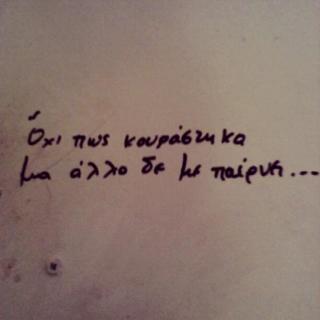 Όχι πως κουράστηκα
μα άλλο δε με παίρνει...